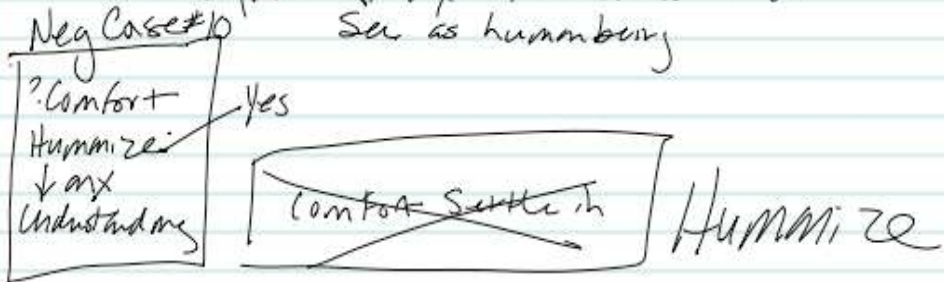 Neg Case #10
See as human being
? Comfort
Humanize
Yes
↓ anx
Understanding
Comfort Settle in
Humanize